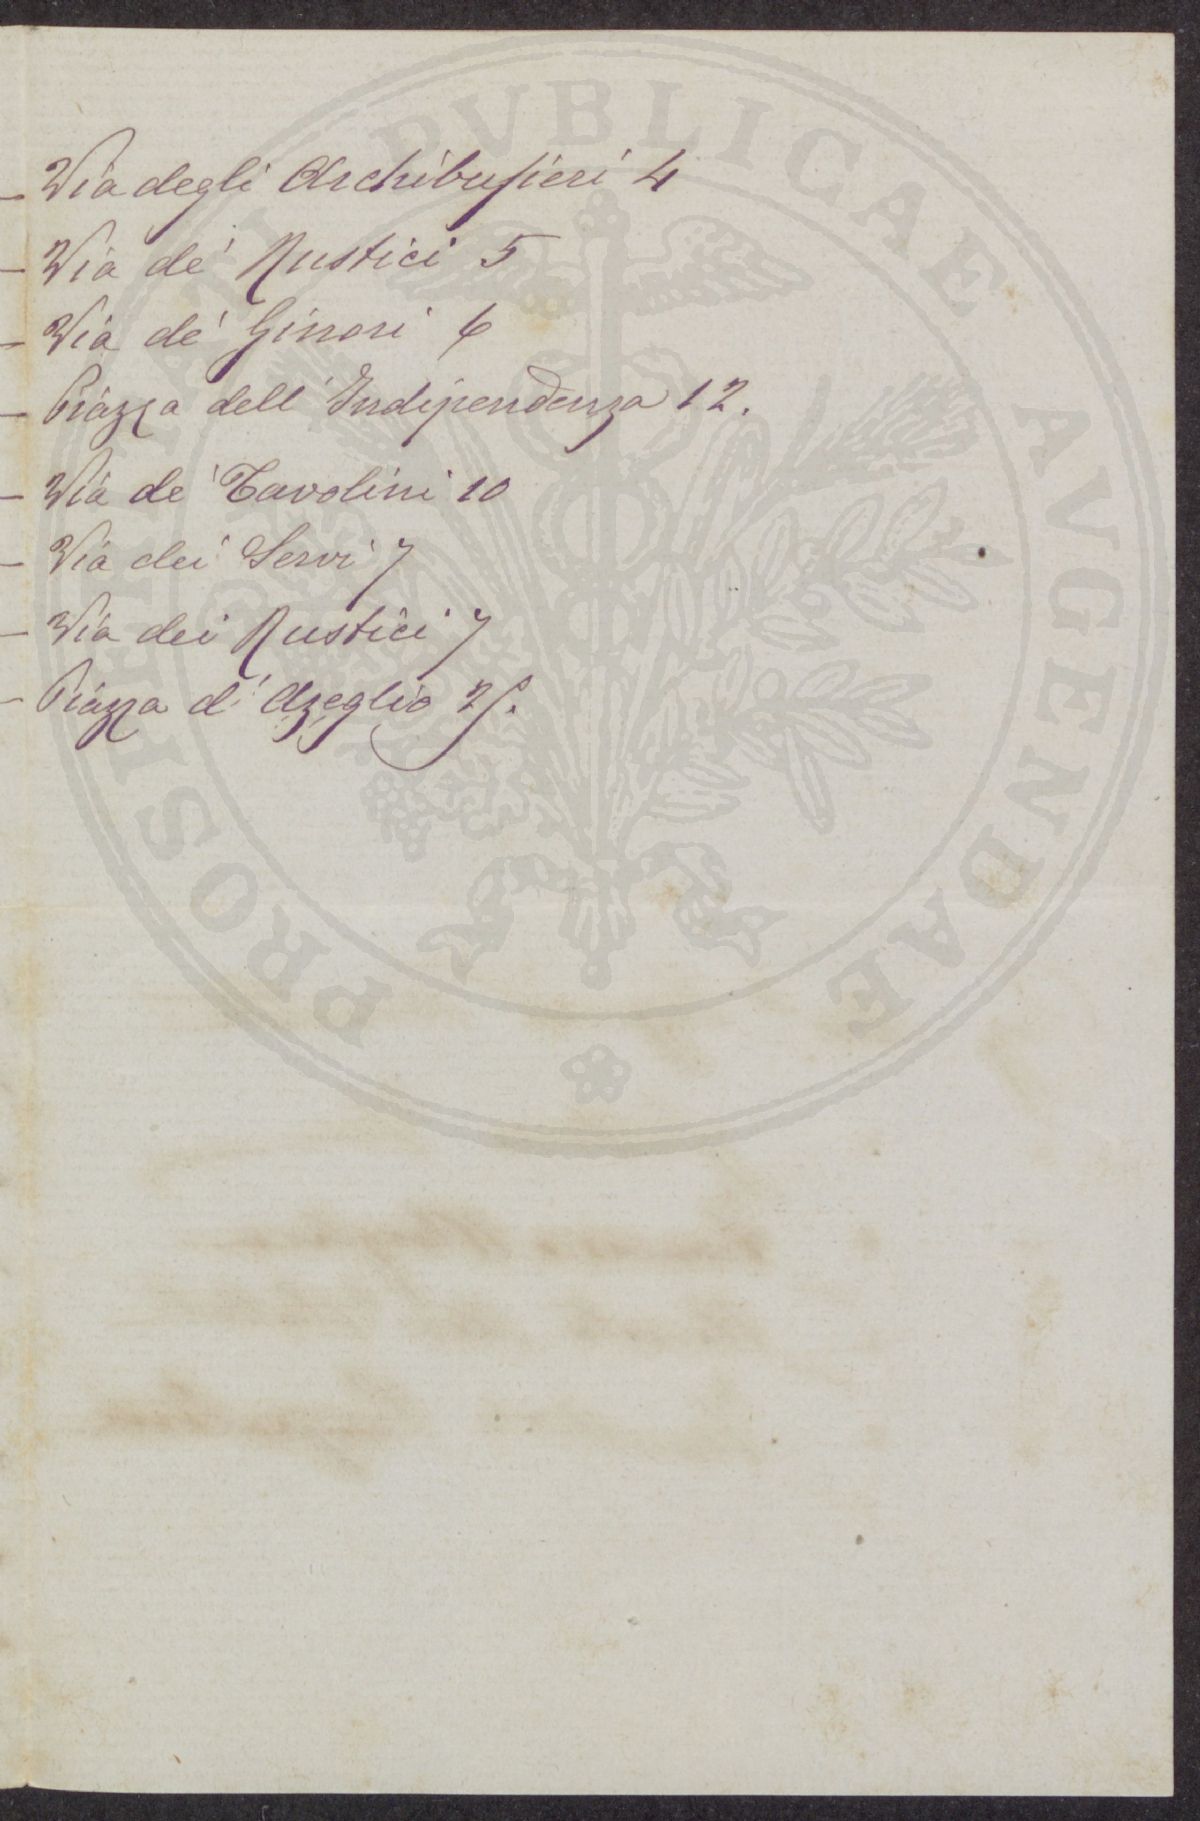 – Via degli Archibusieri 4
– Via de' Rustici 5
– Via de' Ginori 6
– Piazza dell'Indipendenza 12.
– Via de' Tavolini 10
– Via dei Servi 7
– Via dei Rustici 7
– Piazza d'Azeglio
PROSPERITATI PVBLICAE AVGENDAE